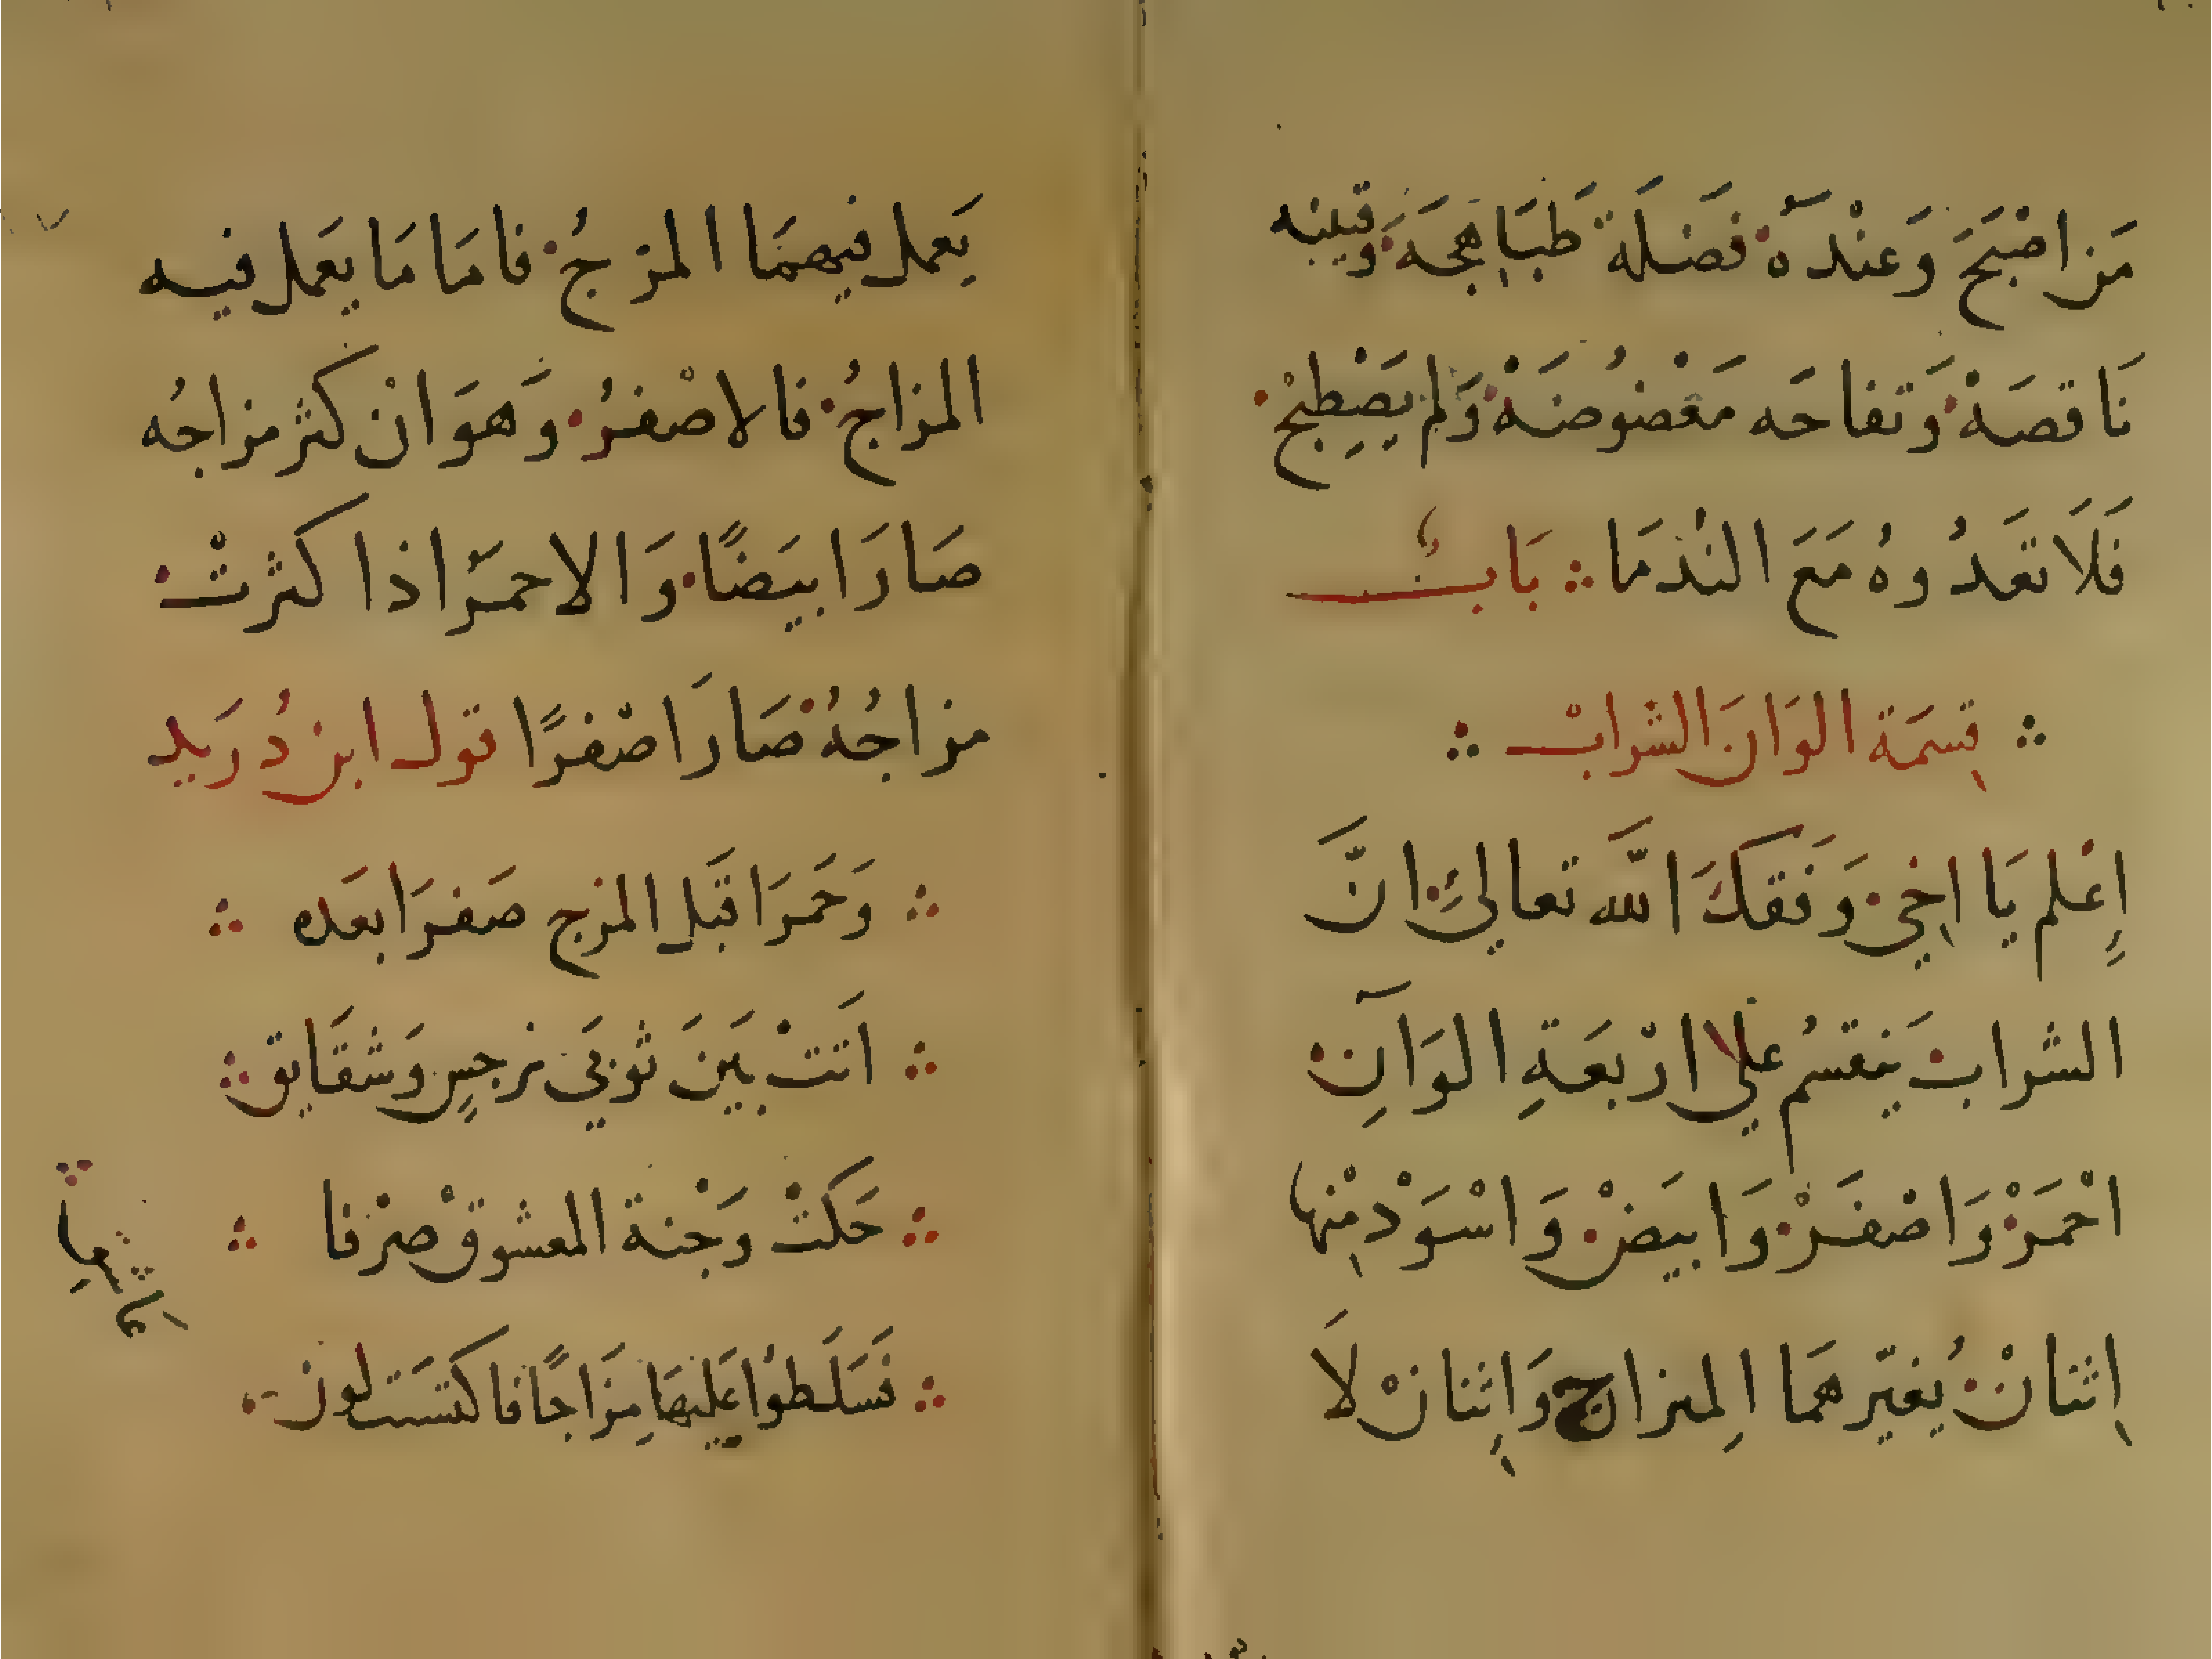 مَن اصْبَحَ وَعنْدَهُ فضَلَة طَبَاهِجَة وَقنينه
نَاقصَةْ وَتفاحَه مَعْضُوضَةْ وَلم يَصْطِبحْ
فَلَا تعَدُوهُ مَعَ النْدمَا ∴ بَابُ
∴ قِسمَة الوَانَ الشرابْ ∴
اِعْلم يَا اخِي وَفقكَ اللّه تعالي انَّ
الشراب يَنقسمُ علي ارْبعَةِ الوَآنِ
احْمَرْ وَاصْفَرْ وَابيَضْ وَاسْوَدْ مِنْها
اِثنانْ يُغيّرهمَا المِزاج وَاِثنانْ لَا
يَعمل فيهمَا المزجُ فامَا مَا يعَمل فيه
المزاجُ فالاصْفرُ وَهوَ انْ كثر مزاجُه
صَارَ ابيَضًا وَالاحمرّ اذا كثرتْ
مزاجُهُ صَارَ اصْفرًا قول ابن دُرَيد
∴ وَحَمرَا قبَل المزج صَفرَا بعَده ∴
∴ اَتتْ بَيَن ثوبَي نرجسٍ وَشقَايق ∴
∴ حَكتْ وَجْنة المعشوقْ صِرْفا ∴
∴ فسَلَطوْا عَليهَا مِزَاجًا فاكتسَت لون
عاشق